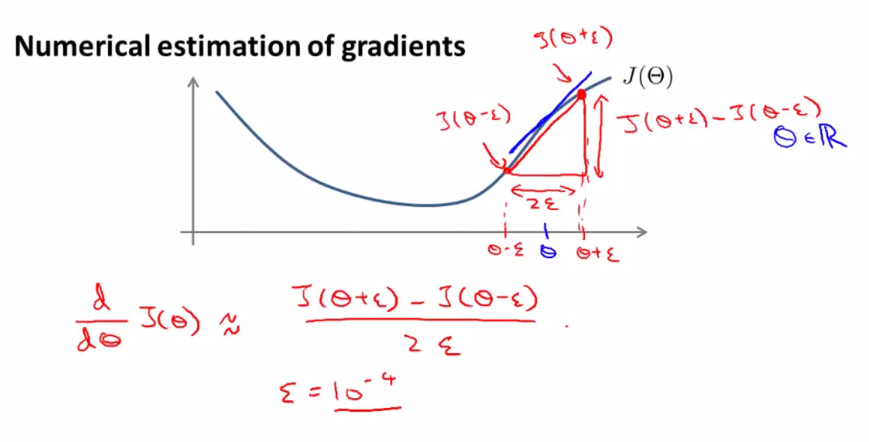 Numerical estimation of gradients
J(θ+ε)
J(Θ)
J(θ-ε)
J(θ+ε) - J(θ-ε)
θ ∈ ℝ
2ε
θ-ε θ θ+ε
d/dθ J(θ) ≈ J(θ+ε) - J(θ-ε) / 2ε .
ε = 10⁻⁴